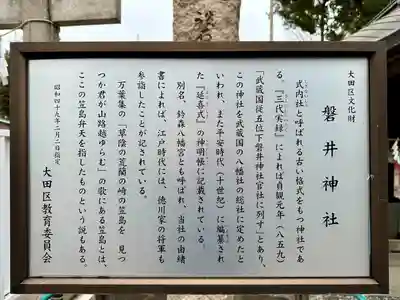 大田区文化財
磐井神社
式内社と呼ばれる古い格式をもつ神社であ
る。『三代実録』によれば貞観元年（八五九）
「武蔵国従五位下磐井神社官社に列す」とあり、
この神社を武蔵国の八幡社の総社に定めたと
いわれ、また平安時代（十世紀）に編纂され
た『延喜式』の神明帳に記載されている。
別名、鈴森八幡宮とも呼ばれ、当社の由緒
書によれば、江戸時代には、徳川家の将軍も
参詣したことが記されている。
万葉集の「草陰の荒藺の崎の笠島を 見つ
つか君が山路越ゆらむ」の歌にある笠島とは、
ここの笠島弁天を指したものという説もある。
昭和四十九年二月二日指定
大田区教育委員会